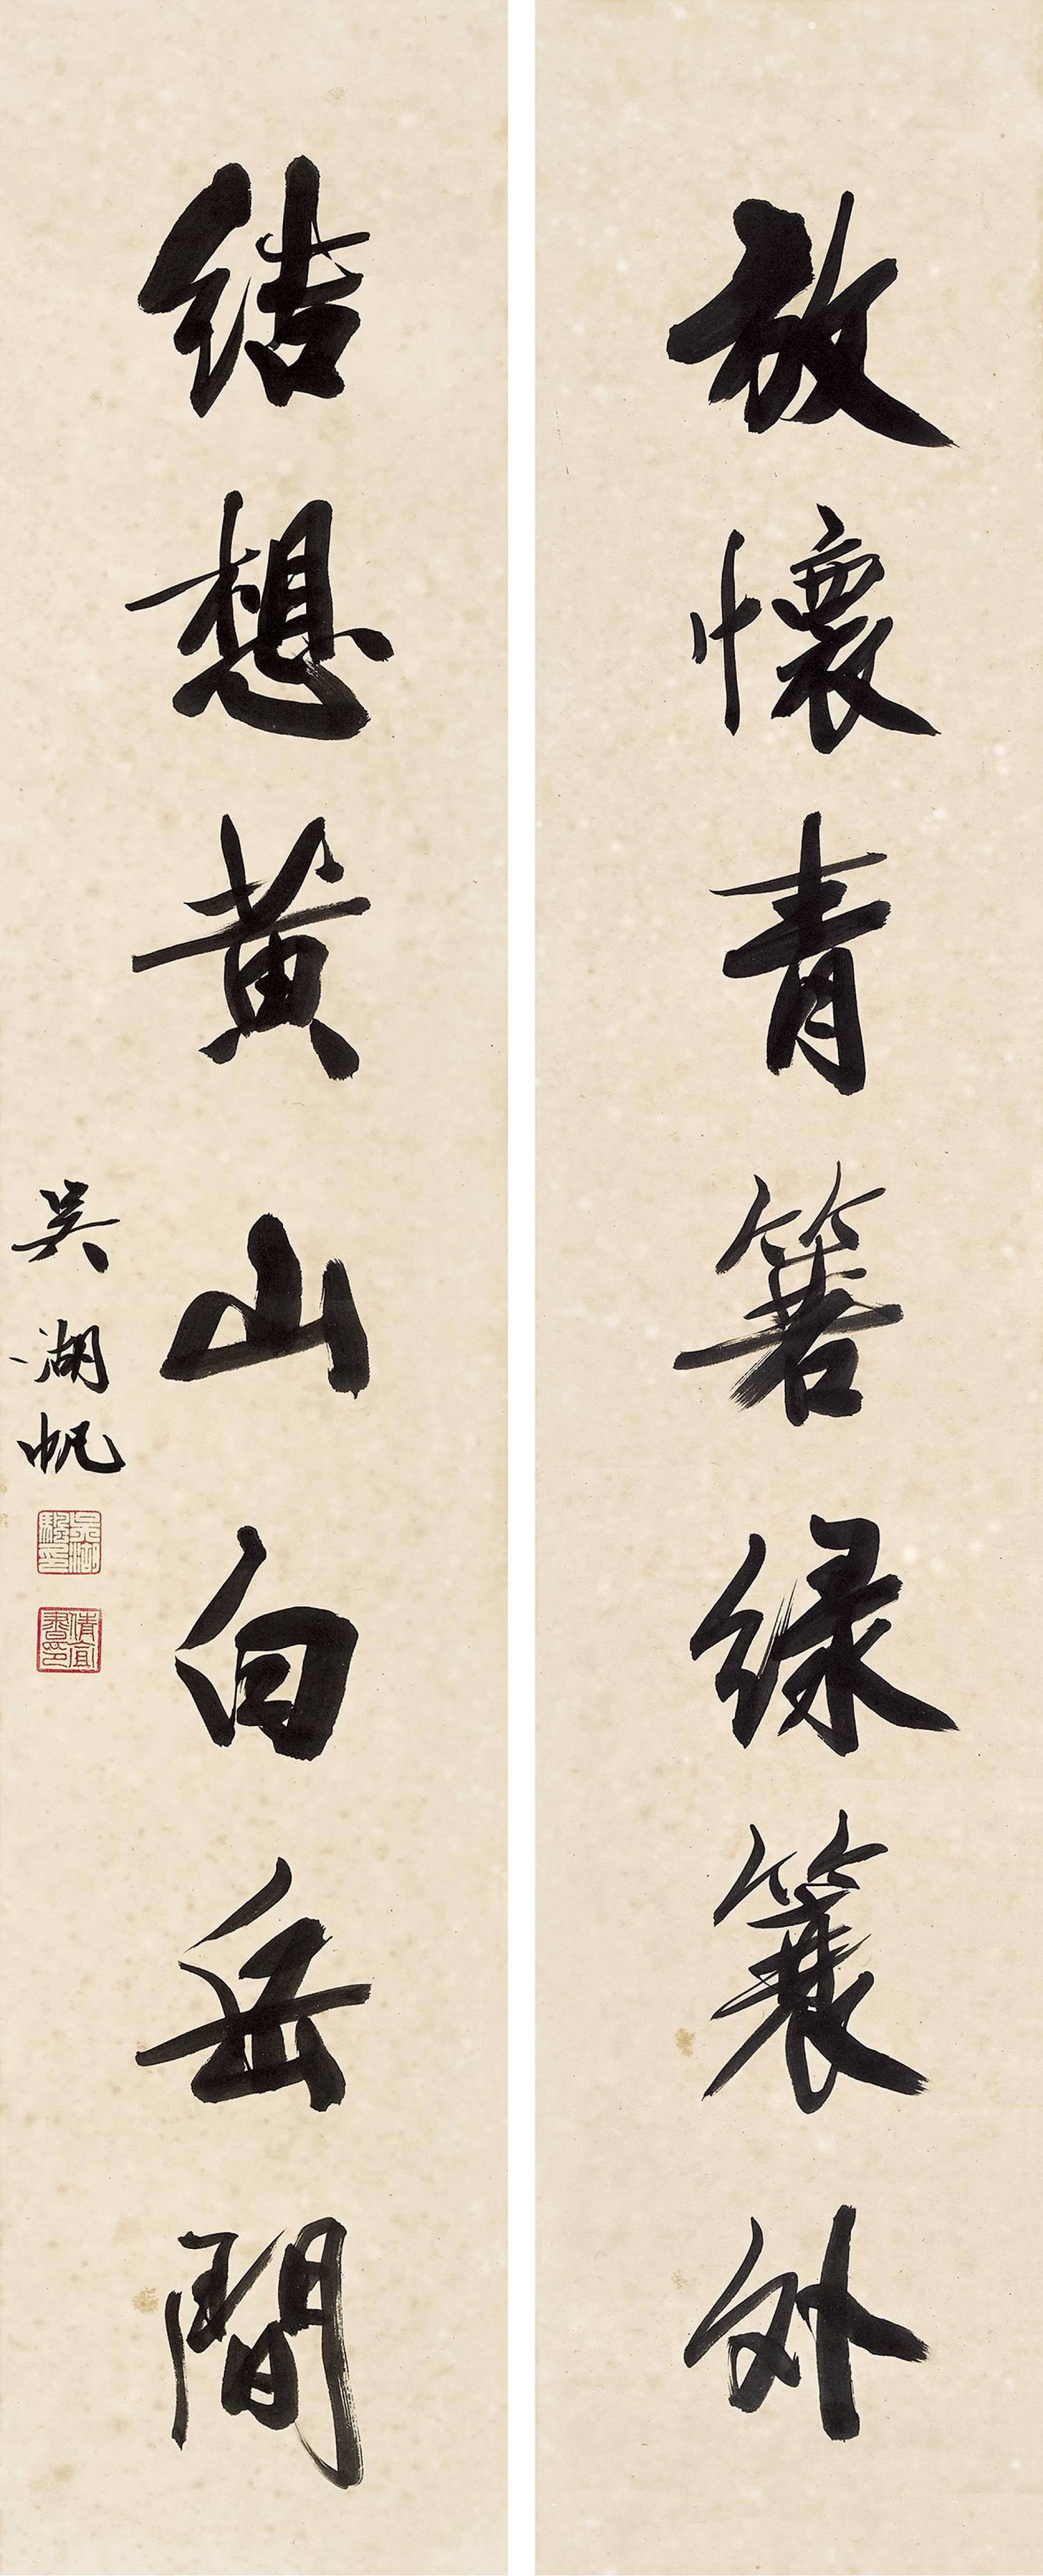 放懷青箬綠簑外
結想黃山白岳間
吳湖帆
吳湖颿印